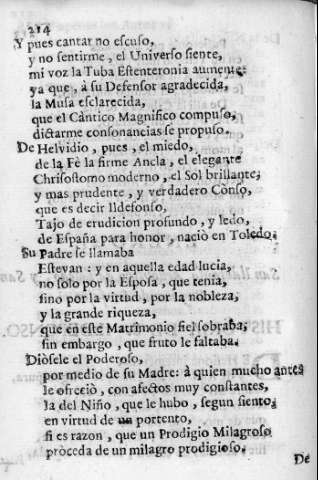 214
Y pues cantar no escuso,
y no sentirme, el Universo siente,
mi voz la Tuba Estenteronia aumente:
ya que, à su Defensor agradecida,
la Musa esclarecida,
que el Càntico Magnifico compuso,
dictarme consonancias se propuso.
De Helvidio, pues, el miedo,
de la Fè la firme Ancla, el elegante
Chrisostomo moderno, el Sol brillante,
y mas prudente, y verdadero Conso,
que es decir Ildefonso,
Tajo de erudicion profundo, y ledo,
de España para honor, naciò en Toledo.
Su Padre se llamaba
Estevan: y en aquella edad lucia,
no solo por la Esposa, que tenia,
sino por la virtud, por la nobleza,
y la grande riqueza,
que en este Matrimonio fiel sobraba;
sin embargo, que fruto le faltaba.
Diòsele el Poderoso,
por medio de su Madre: à quien mucho antes
le ofreciò, con afectos muy constantes,
la del Niño, que le hubo, segun siento,
en virtud de un portento,
si es razon, que un Prodigio Milagroso
pròceda de un milagro prodigioso.
De